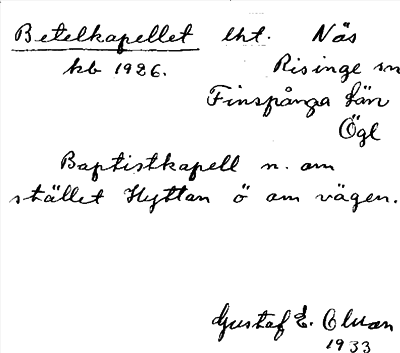 Betelkapellet lht. Näs
kb 1926. Risinge sn
Finspånga län
Ögl
Baptistkapell n. om
stället Hyttan ö om vägen.
Gustaf E. Olsson
1933